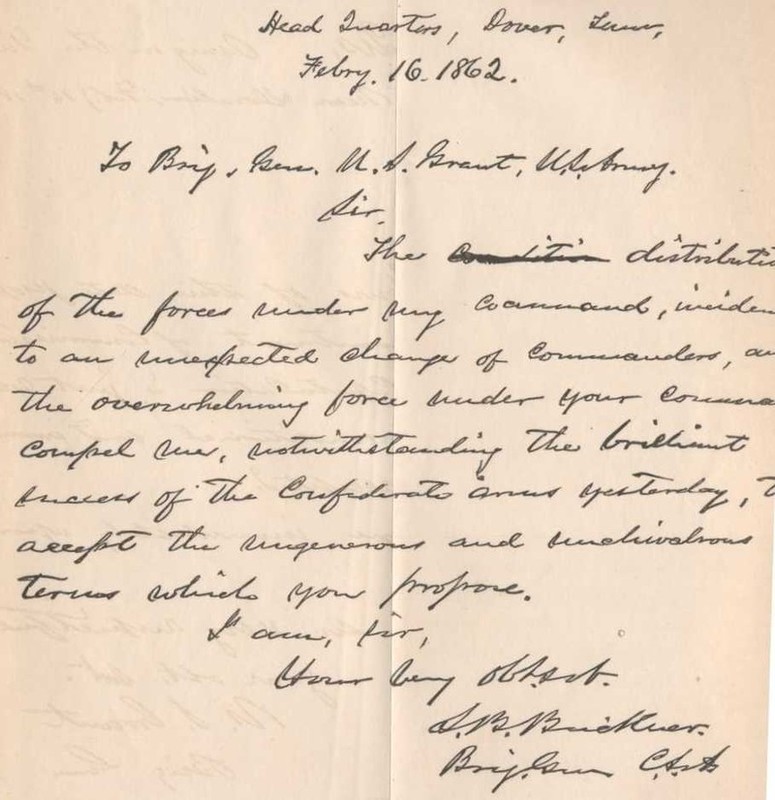 Head Quarters, Dover, Tenn,
Febry. 16. 1862.
To Brig. Gen. U. S. Grant, U.S. Army.
Sir,
The condition distributio
of the forces under my command, inciden
to an unexpected change of commanders, an
the overwhelming force under your comma
compel me, notwithstanding the brilliant
success of the Confederate arms yesterday, t
accept the ungenerous and unchivalrous
terms which you propose.
I am, sir,
Your very obt. svt.
S. B. Buckner.
Brig. Gen C.S.A